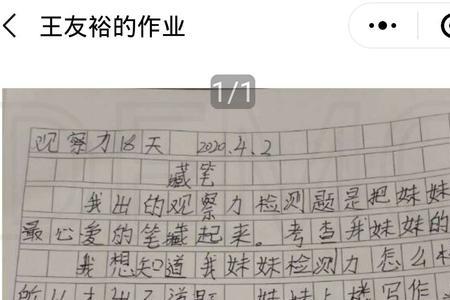 王友裕的作业
1/1
观察力18天 2020.4.2
藏笔
我出的观察力检测题是把妹妹
最心爱的笔藏起来。考查我妹妹的
我想知道我妹妹检测力怎么样
所以才出了这题 妹妹上楼写作